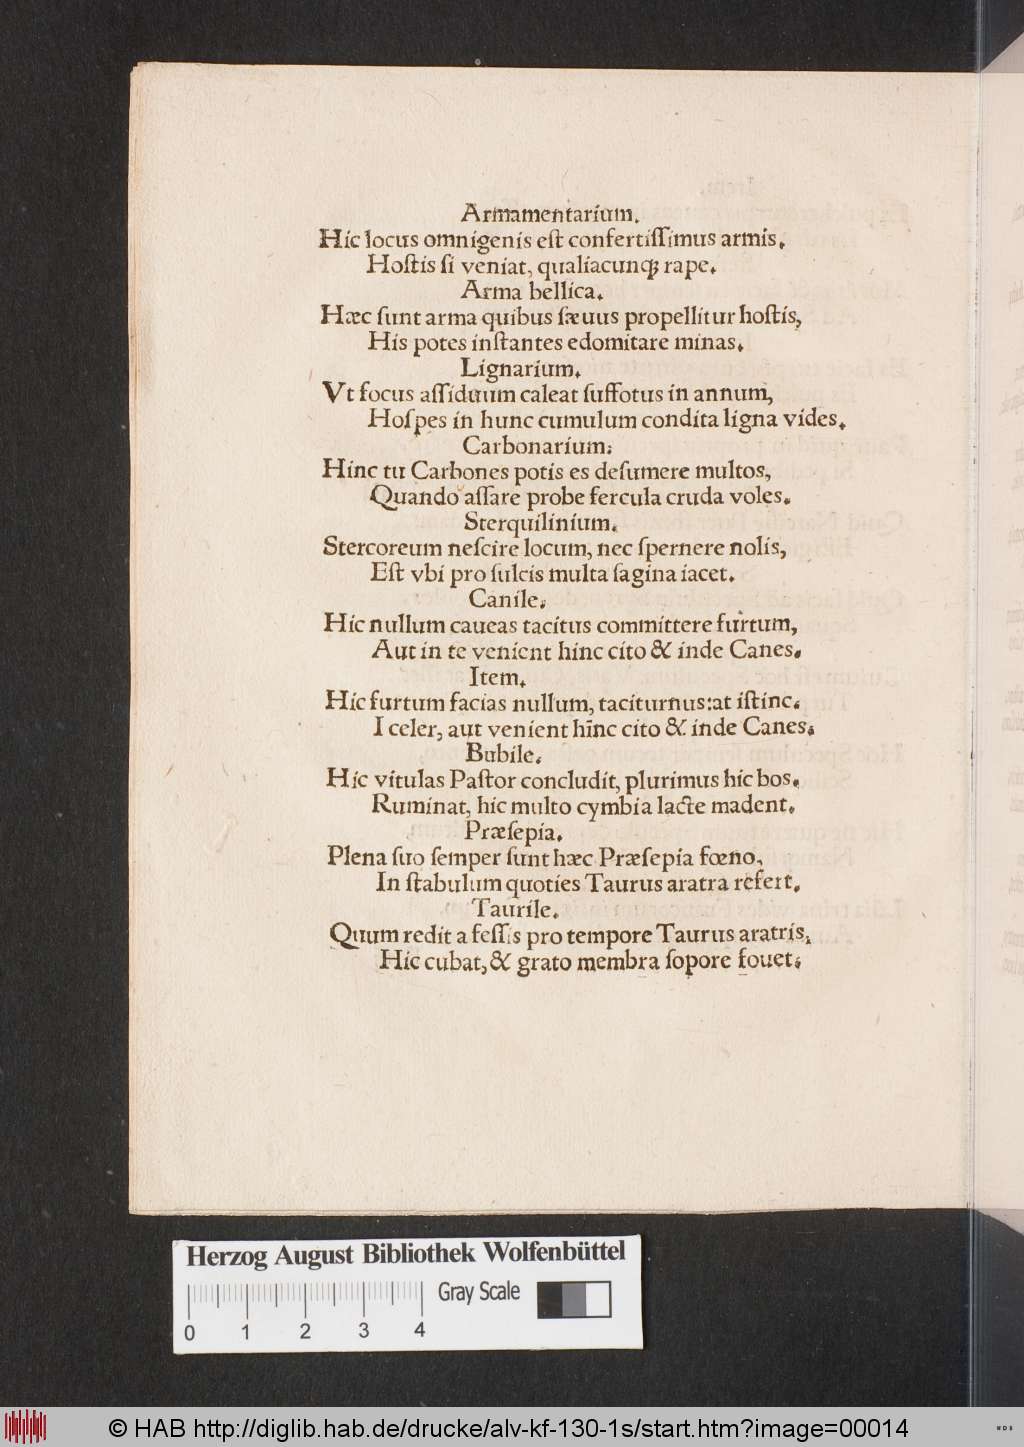 Armamentarium.
Hic locus omnigenis est confertiſſimus armis,
Hostis ſi veniat, qualiacunqꝫ rape.
Arma bellica.
Hæc ſunt arma quibus ſæuus propellitur hostis,
His potes inſtantes edomitare minas.
Lignarium.
Vt focus aſſiduum caleat ſuffotus in annum,
Hoſpes in hunc cumulum condita ligna vides.
Carbonarium:
Hinc tu Carbones potis es deſumere multos,
Quando aſſare probe fercula cruda voles.
Sterquilinium.
Stercoreum neſcire locum, nec ſpernere nolis,
Eſt vbi pro ſulcis multa ſagina iacet.
Canile.
Hic nullum caueas tacitus committere furtum,
Aut in te venient hinc cito & inde Canes.
Item.
Hic furtum facias nullum, taciturnus: at iſtinc.
I celer, aut venient hīnc cito & inde Canes.
Bubile.
Hic vitulas Paſtor concludit, plurimus hic bos.
Ruminat, hic multo cymbia lacte madent.
Præſepia.
Plena ſuo ſemper ſunt hæc Præſepia fœno,
In ſtabulum quoties Taurus aratra refert.
Taurile.
Quum redit a feſſis pro tempore Taurus aratris,
Hic cubat, & grato membra ſopore fouet.
Herzog August Bibliothek Wolfenbüttel
Gray Scale
0 1 2 3 4
© HAB http://diglib.hab.de/drucke/alv-kf-130-1s/start.htm?image=00014